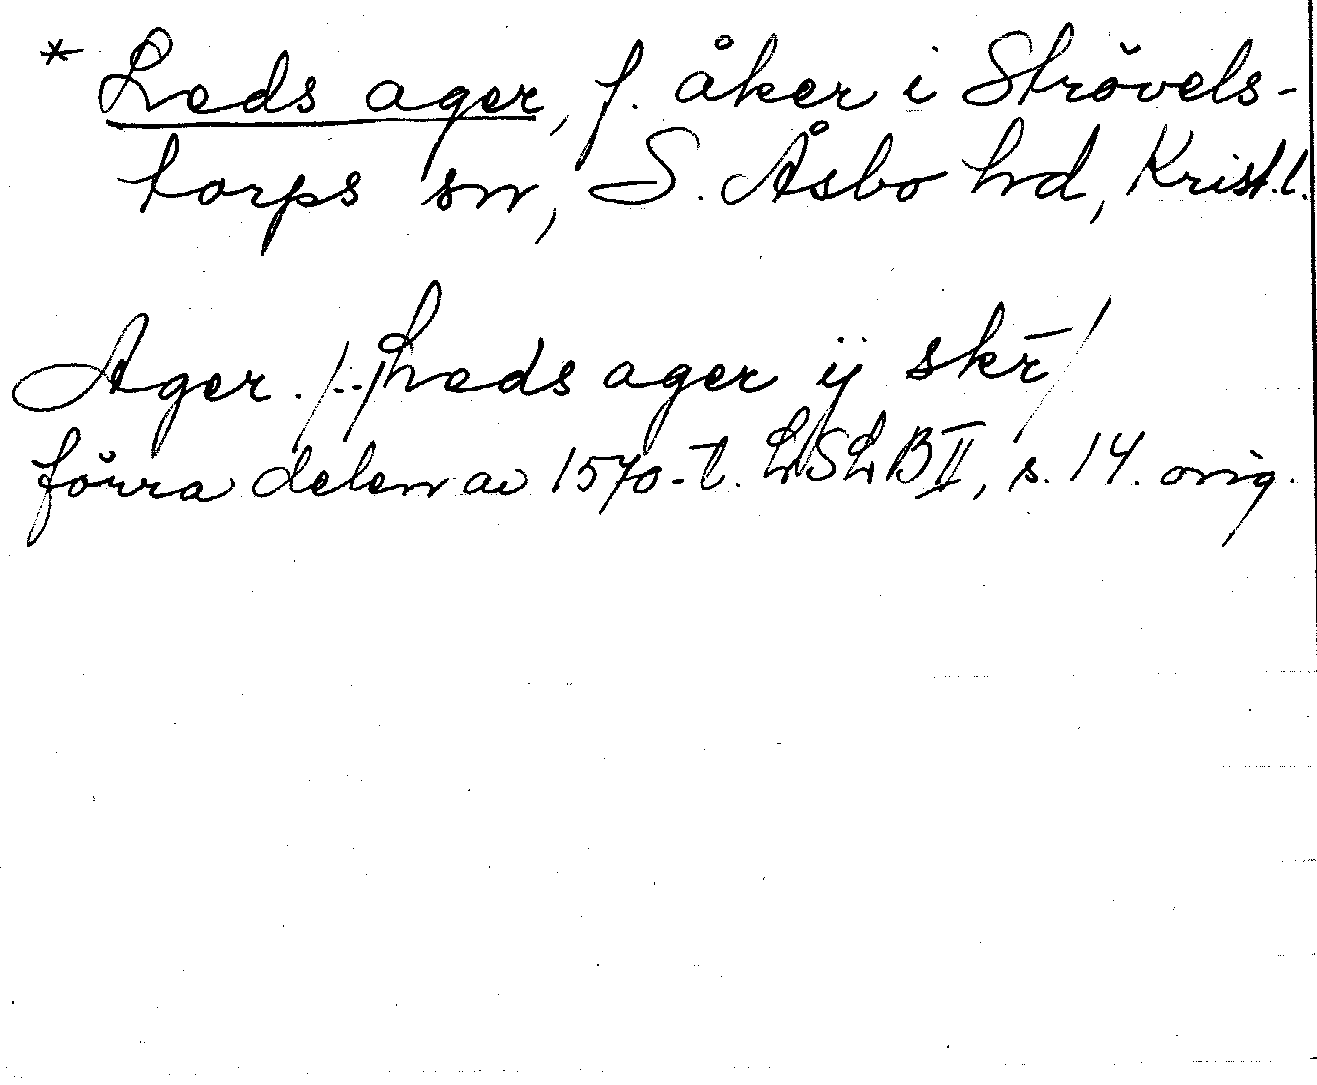 * Leds ager, f. åker i Strövels-
torps sn, S. Åsbo hd, Krist.l.
Ager. /../ Leds ager ij skr̄/
förra delen av 1570-t. LSLB II, s. 14. orig.